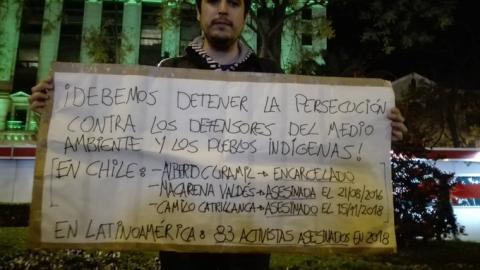 ¡DEBEMOS DETENER LA PERSECUCIÓN
CONTRA LOS DEFENSORES DEL MEDIO
AMBIENTE Y LOS PUEBLOS INDÍGENAS!
EN CHILE: - ALBERTO CURAMIL → ENCARCELADO
- MACARENA VALDÉS → ASESINADA EL 21/08/2016
- CAMILO CATRILLANCA → ASESINADO EL 15/11/2018
EN LATINOAMÉRICA: 83 ACTIVISTAS ASESINADOS EN 2018